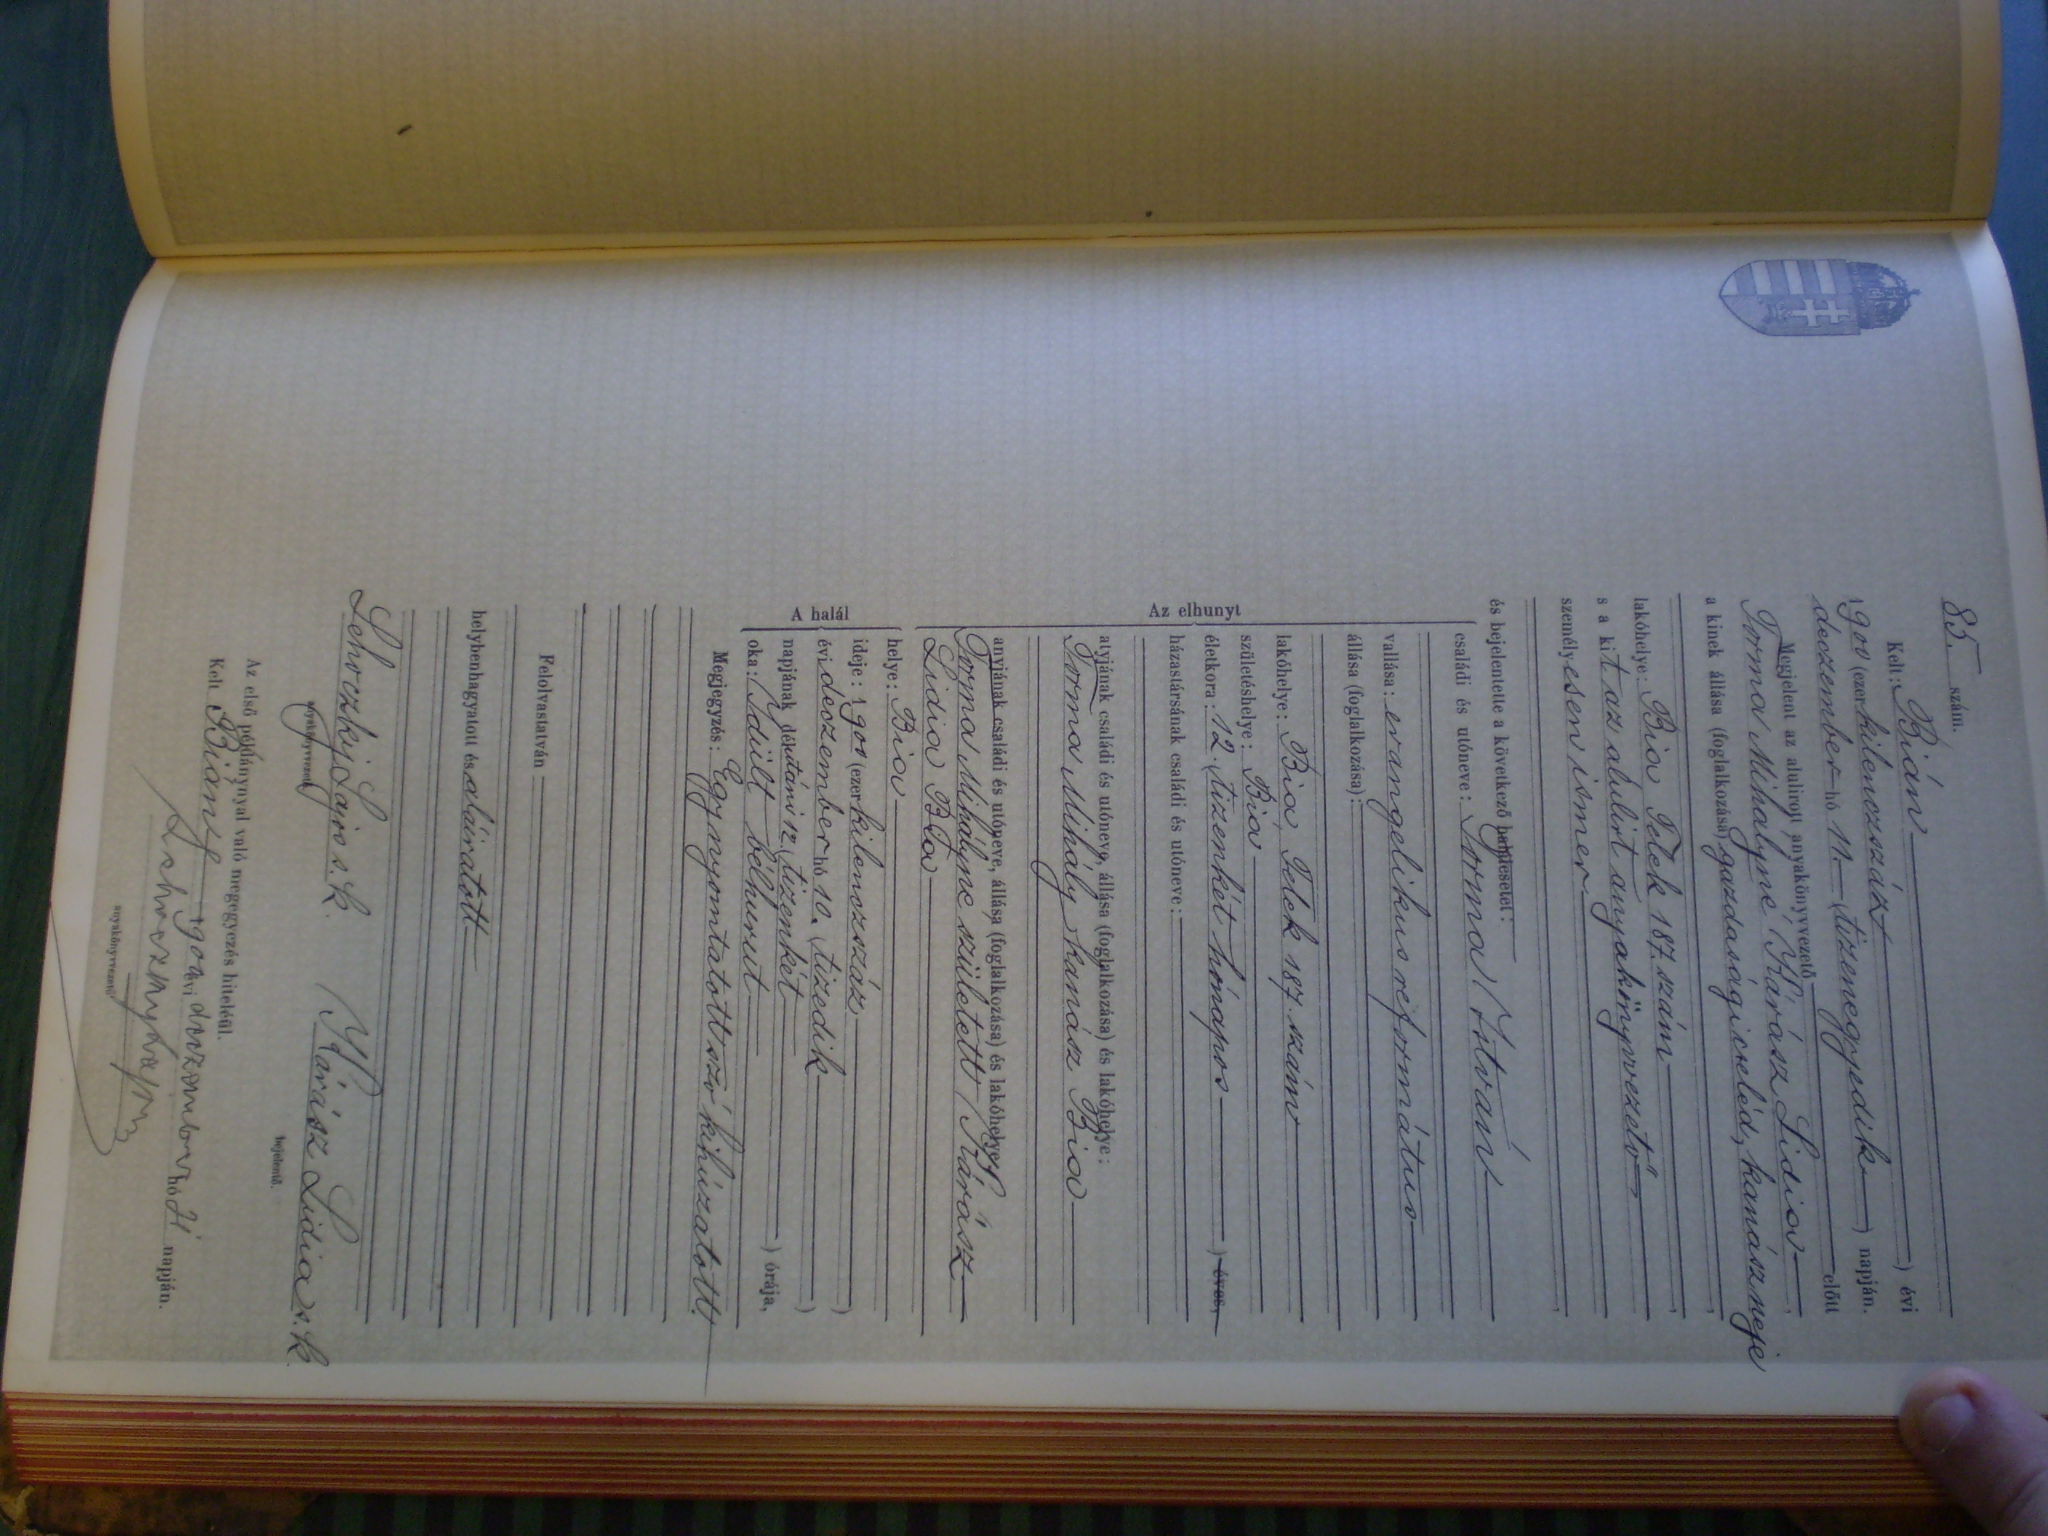 85. szám.
Kelt: Bián
1900 (ezer kilenczszáz ) évi
deczember hó 11. (tizenegyedik ) napján.
Megjelent az alulirott anyakönyvezető előtt
Torma Mihályné Kárász Lidia ,
a kinek állása (foglalkozása) gazdasági cseléd, kanász neje ,
lakóhelye: Bia Telek 187. szám ,
s a kit az alulirt anyakönyvvezető
személyesen ismer ,
és bejelentette a következő halálesetet:
családi és utóneve: Torma István
vallása: evangelikus református
állása (foglalkozása):
Az elhunyt
lakóhelye: Bia, Telek 187. szám
születéshelye: Bia
életkora: 12. (tizenkét hónapos ) éves,
házastársának családi és utóneve:
atyjának családi és utóneve, állása (foglalkozása) és lakóhelye:
Torma Mihály kanász Bia
anyjának családi és utóneve, állása (foglalkozása) és lakóhelye:
Torma Mihályné született Kárász
Lidia Bia
A halál
helye: Bia
ideje: 1900 (ezer kilenczszáz )
évi deczember hó 10. (tizedik )
napjának délutáni 12 (tizenkét ) órája,
oka: Idült bélhurut
Megjegyzés: Egy nyomtatott szó kihúzatott.
Felolvastatván
helybenhagyatott és aláiratott
Kárász Lidia s. k.
bejelentő.
anyakönyvvezető
Az első példánynyal való megegyezés hiteléül.
Kelt Bián 1900 évi deczember hó 31 napján.
anyakönyvvezető